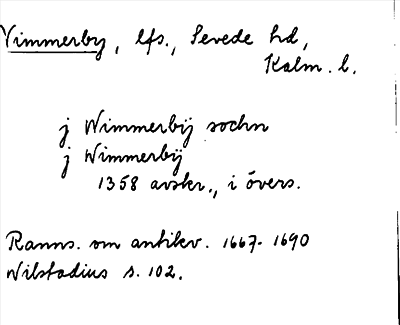 Vimmerby, lfs., Sevede hd,
Kalm. l.
j Wimmerbij sochn
j Wimmerbij
1358 avskr., i övers.
Ranns. om antikv. 1667-1690
Wilstadius s. 102.